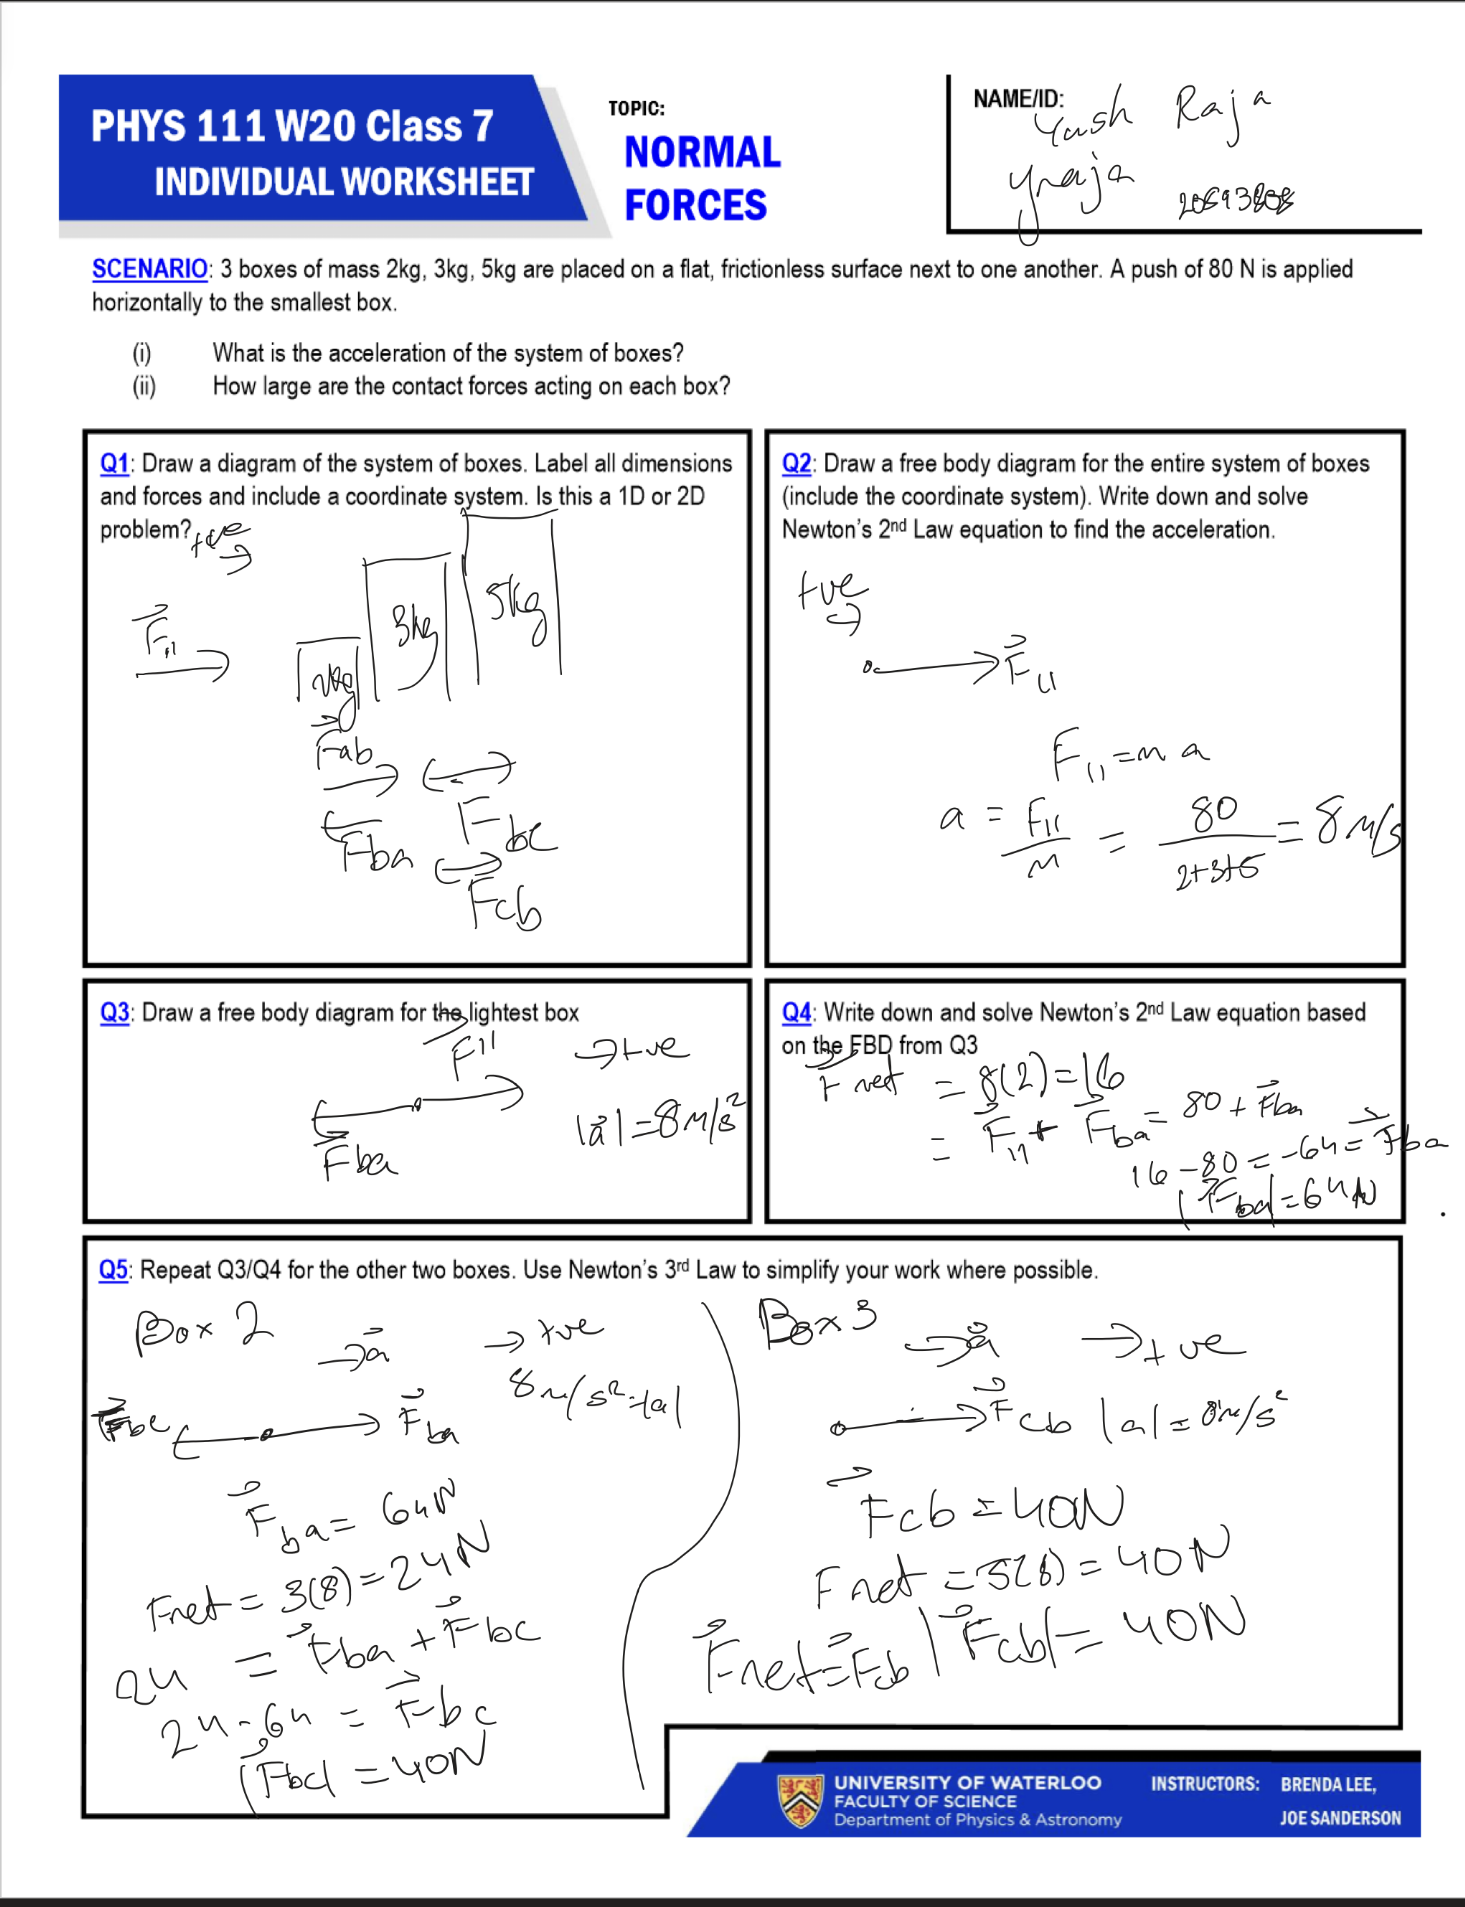 PHYS 111 W20 Class 7
INDIVIDUAL WORKSHEET
TOPIC:
NORMAL
FORCES
NAME/ID:
Yash Raja
yraja
SCENARIO: 3 boxes of mass 2kg, 3kg, 5kg are placed on a flat, frictionless surface next to one another. A push of 80 N is applied
horizontally to the smallest box.
(i) What is the acceleration of the system of boxes?
(ii) How large are the contact forces acting on each box?
Q1: Draw a diagram of the system of boxes. Label all dimensions
and forces and include a coordinate system. Is this a 1D or 2D
problem?
+ve
→
F⃗11
2kg
3kg
5kg
F⃗ab
Fba
Fbc
Fcb
Q2: Draw a free body diagram for the entire system of boxes
(include the coordinate system). Write down and solve
Newton's 2nd Law equation to find the acceleration.
+ve
→
F⃗11
F11 = m a
a = F11/m = 80/(2+3+5) = 8 m/s
Q3: Draw a free body diagram for the lightest box
F⃗11
→+ve
F⃗ba
|a⃗| = 8 m/s²
Q4: Write down and solve Newton's 2nd Law equation based
on the FBD from Q3
F⃗net = 8(2) = 16
= F⃗11 + F⃗ba = 80 + F⃗ba
16 - 80 = -64 = F⃗ba
|F⃗ba| = 64N
Q5: Repeat Q3/Q4 for the other two boxes. Use Newton's 3rd Law to simplify your work where possible.
Box 2
→a⃗ → +ve
8 m/s² = |a|
F⃗bc F⃗ba
F⃗ba = 64N
Fnet = 3(8) = 24N
24 = F⃗ba + F⃗bc
24 - 64 = F⃗bc
|F⃗bc| = 40N
Box 3
→a⃗ → +ve
F⃗cb |a| = 8m/s²
F⃗cb = 40N
Fnet = 5(8) = 40N
F⃗net = F⃗cb |F⃗cb| = 40N
UNIVERSITY OF WATERLOO
FACULTY OF SCIENCE
Department of Physics & Astronomy
INSTRUCTORS: BRENDA LEE,
JOE SANDERSON